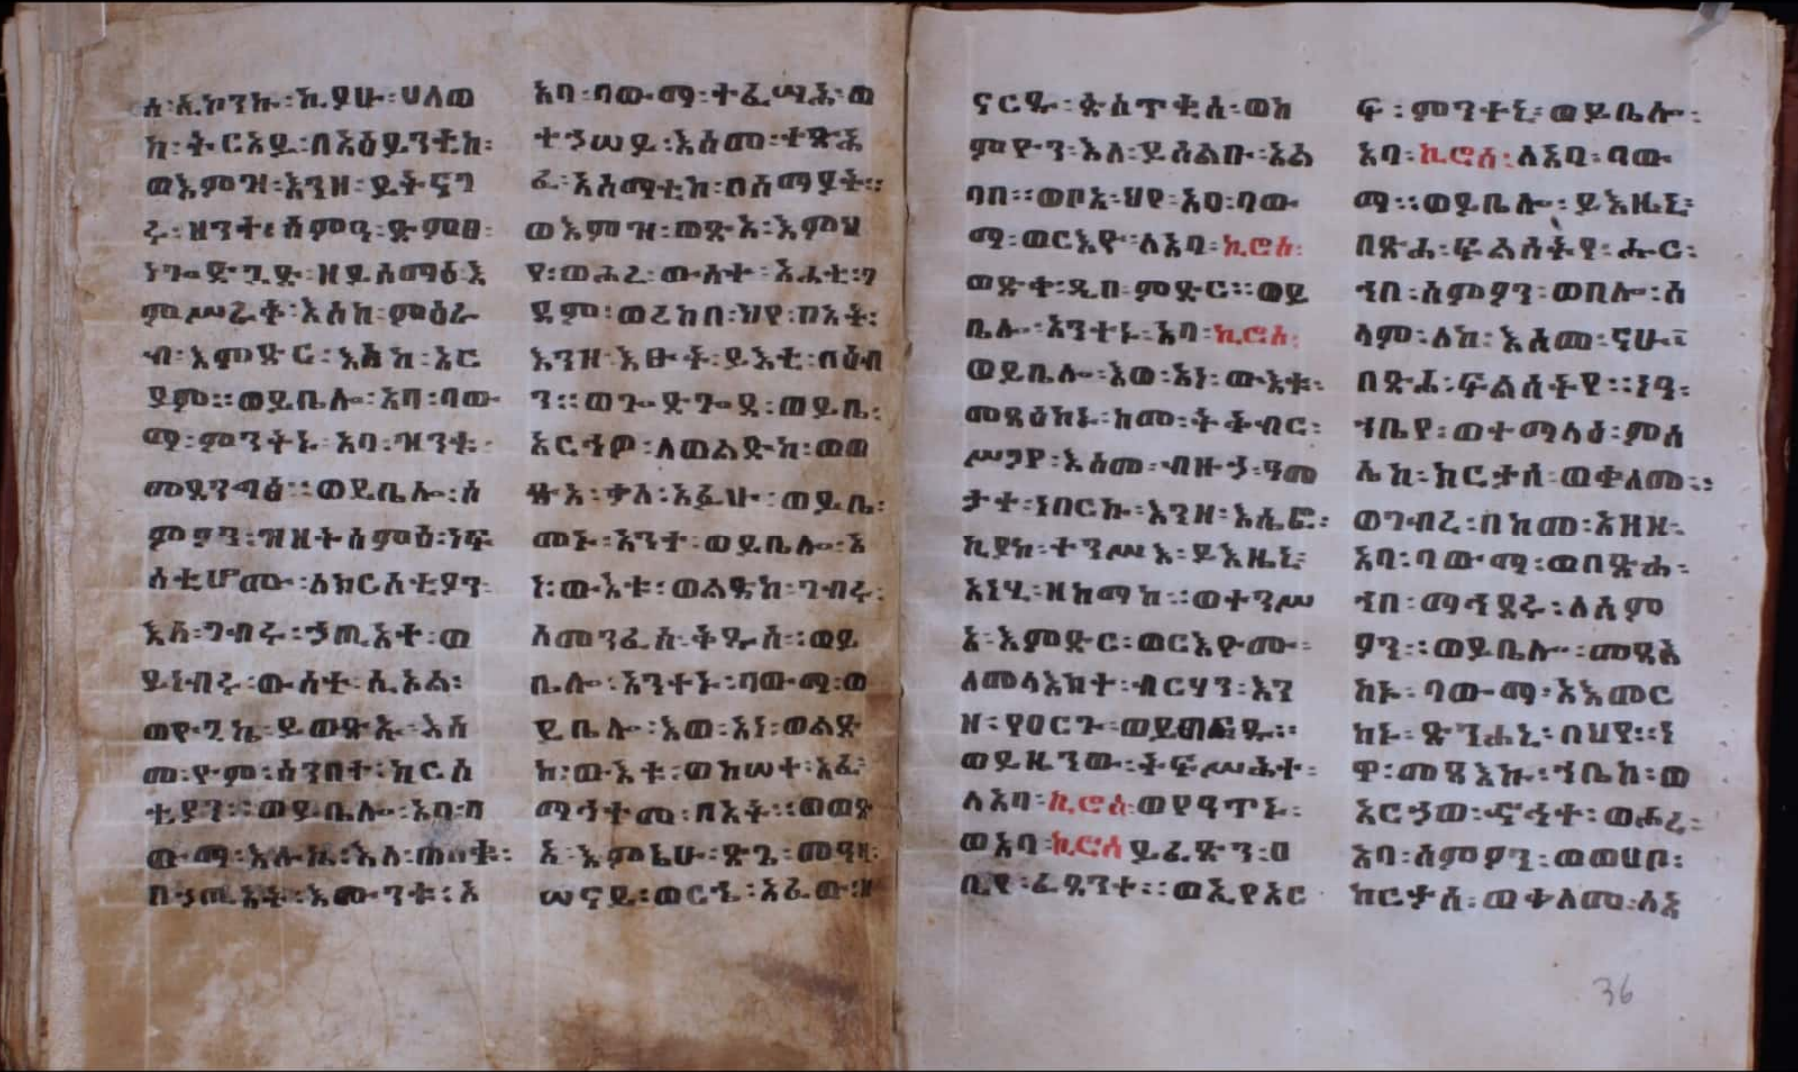 ሰ፡ኢኮንኩ፡ኪያሁ፡ህለወ
ከ፡ትርአይ፡በአዕይንቲከ፡
ወእምዝ፡እንዘ፡ይትናገ
ሩ፡ዘንተ፡ሰምዑ፡ድምፀ፡
ነጐድጓድ፡ዘይሰማዕ፡እ
ምሥራቅ፡እስከ፡ምዕራ
ብ፡እምድር፡እስከ፡አር
ያም፡፡ወይቤሎ፡አባ፡ባው
ማ፡ምንትኑ፡አባ፡ዝንቱ፡
መደንግፅ፡፡ወይቤሎ፡ሰ
ምዖን፡ዝዘትሰምዕ፡ነፍ
ሳቲሆሙ፡ለክርስቲያን፡
እለ፡ገብሩ፡ኃጢአተ፡ወ
ይነብሩ፡ውስተ፡ሲኦል፡
ወየጊኬ፡ይወፅኢ፡እስ
መ፡ዮም፡ሰንበተ፡ክርስ
ቲያን፡፡ወይቤሎ፡አባ፡ባ
ውማ፡እሉኬ፡እለ፡ጠመቁ፡
በኃጢአት፡እሙንቱ፡፡አ
አባ፡ባውማ፡ተፈሣሕ፡ወ
ተኃሠይ፡እስመ፡ተጽሕ
ፈ፡አስማቲከ፡በሰማያት፡፡
ወእምዝ፡ወጽአ፡እምህ
የ፡ወሖረ፡ውስተ፡አሐቲ፡ገ
ዳም፡ወረከበ፡ህየ፡በአት፡
እንዘ፡እፁት፡ይእቲ፡በዕብ
ን፡፡ወጐድጐደ፡ወይቤ፡
አርኅዎ፡ለወልድከ፡ወወ
ፅአ፡ቃለ፡አፈሁ፡ወይቤ፡
መኑ፡አንተ፡ወይቤሎ፡አ
ነ፡ውእቱ፡ወልድከ፡ገብሩ፡
ለመንፈስ፡ቅዱስ፡፡ወይ
ቤሎ፡አንተኑ፡ባውማ፡ወ
ይቤሎ፡እወ፡አነ፡ወልድ
ከ፡ውእቱ፡ወከሠተ፡አፈ፡
ማኅተመ፡በአት፡፡ወወፅ
አ፡እምኔሁ፡ጽጌ፡መዓዛ፡
ሠናይ፡ወርኄ፡አፈው፡ዘ
ናርዱ፡ፅስጥቂስ፡ወከ
ምዮን፡እለ፡ይሰልቡ፡አል
ባበ፡፡ወቦአ፡ህየ፡አባ፡ባው
ማ፡ወርእዮ፡ለአባ፡ኪሮስ፡
ወድቀ፡ዲበ፡ምድር፡፡ወይ
ቤሎ፡አንተኑ፡አባ፡ኪሮስ፡
ወይቤሎ፡እወ፡አነ፡ውእቱ፡
መጻዕከኑ፡ከመ፡ትቅብር፡
ሥጋየ፡እስመ፡ብዙኃ፡ዓመ
ታተ፡ነበርኩ፡እንዘ፡እሴፎ፡
ኪያከ፡ተንሥእ፡ይእዜኒ፡
አነሂ፡ዘከማከ፡፡ወተንሥ
አ፡እምድር፡ወርእዮሙ፡
ለመላእክተ፡ብርሃን፡እን
ዘ፡የዐርጉ፡ወይወፍዱ፡፡
ወይዜንው፡ትፍሥሕተ፡
ለአባ፡ኪሮስ፡ወየዓጥኑ፡
ወአባ፡ኪሮስ፡ይፈጽን፡ዐ
ቢየ፡ፈጻንተ፡፡ወኢየአር
ፍ፡ምንተኒ፡ወይቤሎ፡
አባ፡ኪሮስ፡ለአባ፡ባው
ማ፡፡ወይቤሎ፡ይእዜኒ፡
በጽሐ፡ፍልሰትየ፡ሑር፡
ኀበ፡ስምዖን፡ወበሎ፡ሰ
ላም፡ለከ፡እስመ፡ናሁ፡
በጽሐ፡ፍልሰትየ፡፡ነዓ፡
ኀቤየ፡ወተማላዕ፡ምስ
ሌከ፡ክርታሰ፡ወቀለመ፡፡
ወገብረ፡በከመ፡አዘዘ፡
አባ፡ባውማ፡ወበጽሐ፡
ኀበ፡ማኅደሩ፡ለስም
ዖን፡፡ወይቤሎ፡መጻእ
ከኑ፡ባውማ፡አእመር
ከኑ፡ድኅሐኒ፡በህየ፡፡ነ
ዋ፡መጻእኩ፡ኀቤከ፡ወ
አርኃወ፡ኆኅተ፡ወሖረ፡
አባ፡ስምዖን፡ወወሀቦ፡
ክርታሰ፡ወቀለመ፡ለአ
36